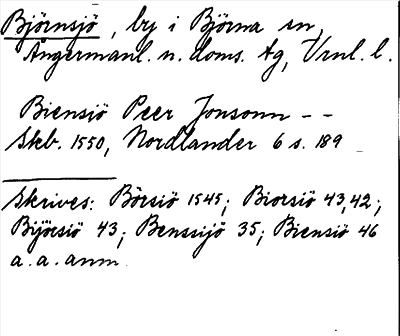 Björnsjö, by i Björna sn,
Ångermanl. n. doms. ög, Vrnl. l.
Biensiö Peer Jonsonn - -
Skb. 1550, Nordlander 6 s. 189
Skrives: Börsiö 1545; Biorsiö 43,42;
Bijörsiö 43; Benssijö 35; Biensiö 46
a. a. anm